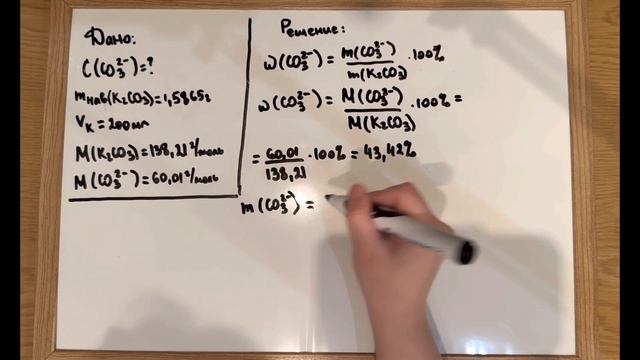 Дано:
C(CO₃²⁻)=?
mнав(K₂CO₃)=1,5865г
Vк=200мл
M(K₂CO₃)=138,21г/моль
M(CO₃²⁻)=60,01г/моль
Решение:
ω(CO₃²⁻) = m(CO₃²⁻)/m(K₂CO₃) · 100%
ω(CO₃²⁻) = M(CO₃²⁻)/M(K₂CO₃) · 100% =
= 60,01/138,21 · 100% = 43,42%
m(CO₃²⁻) =